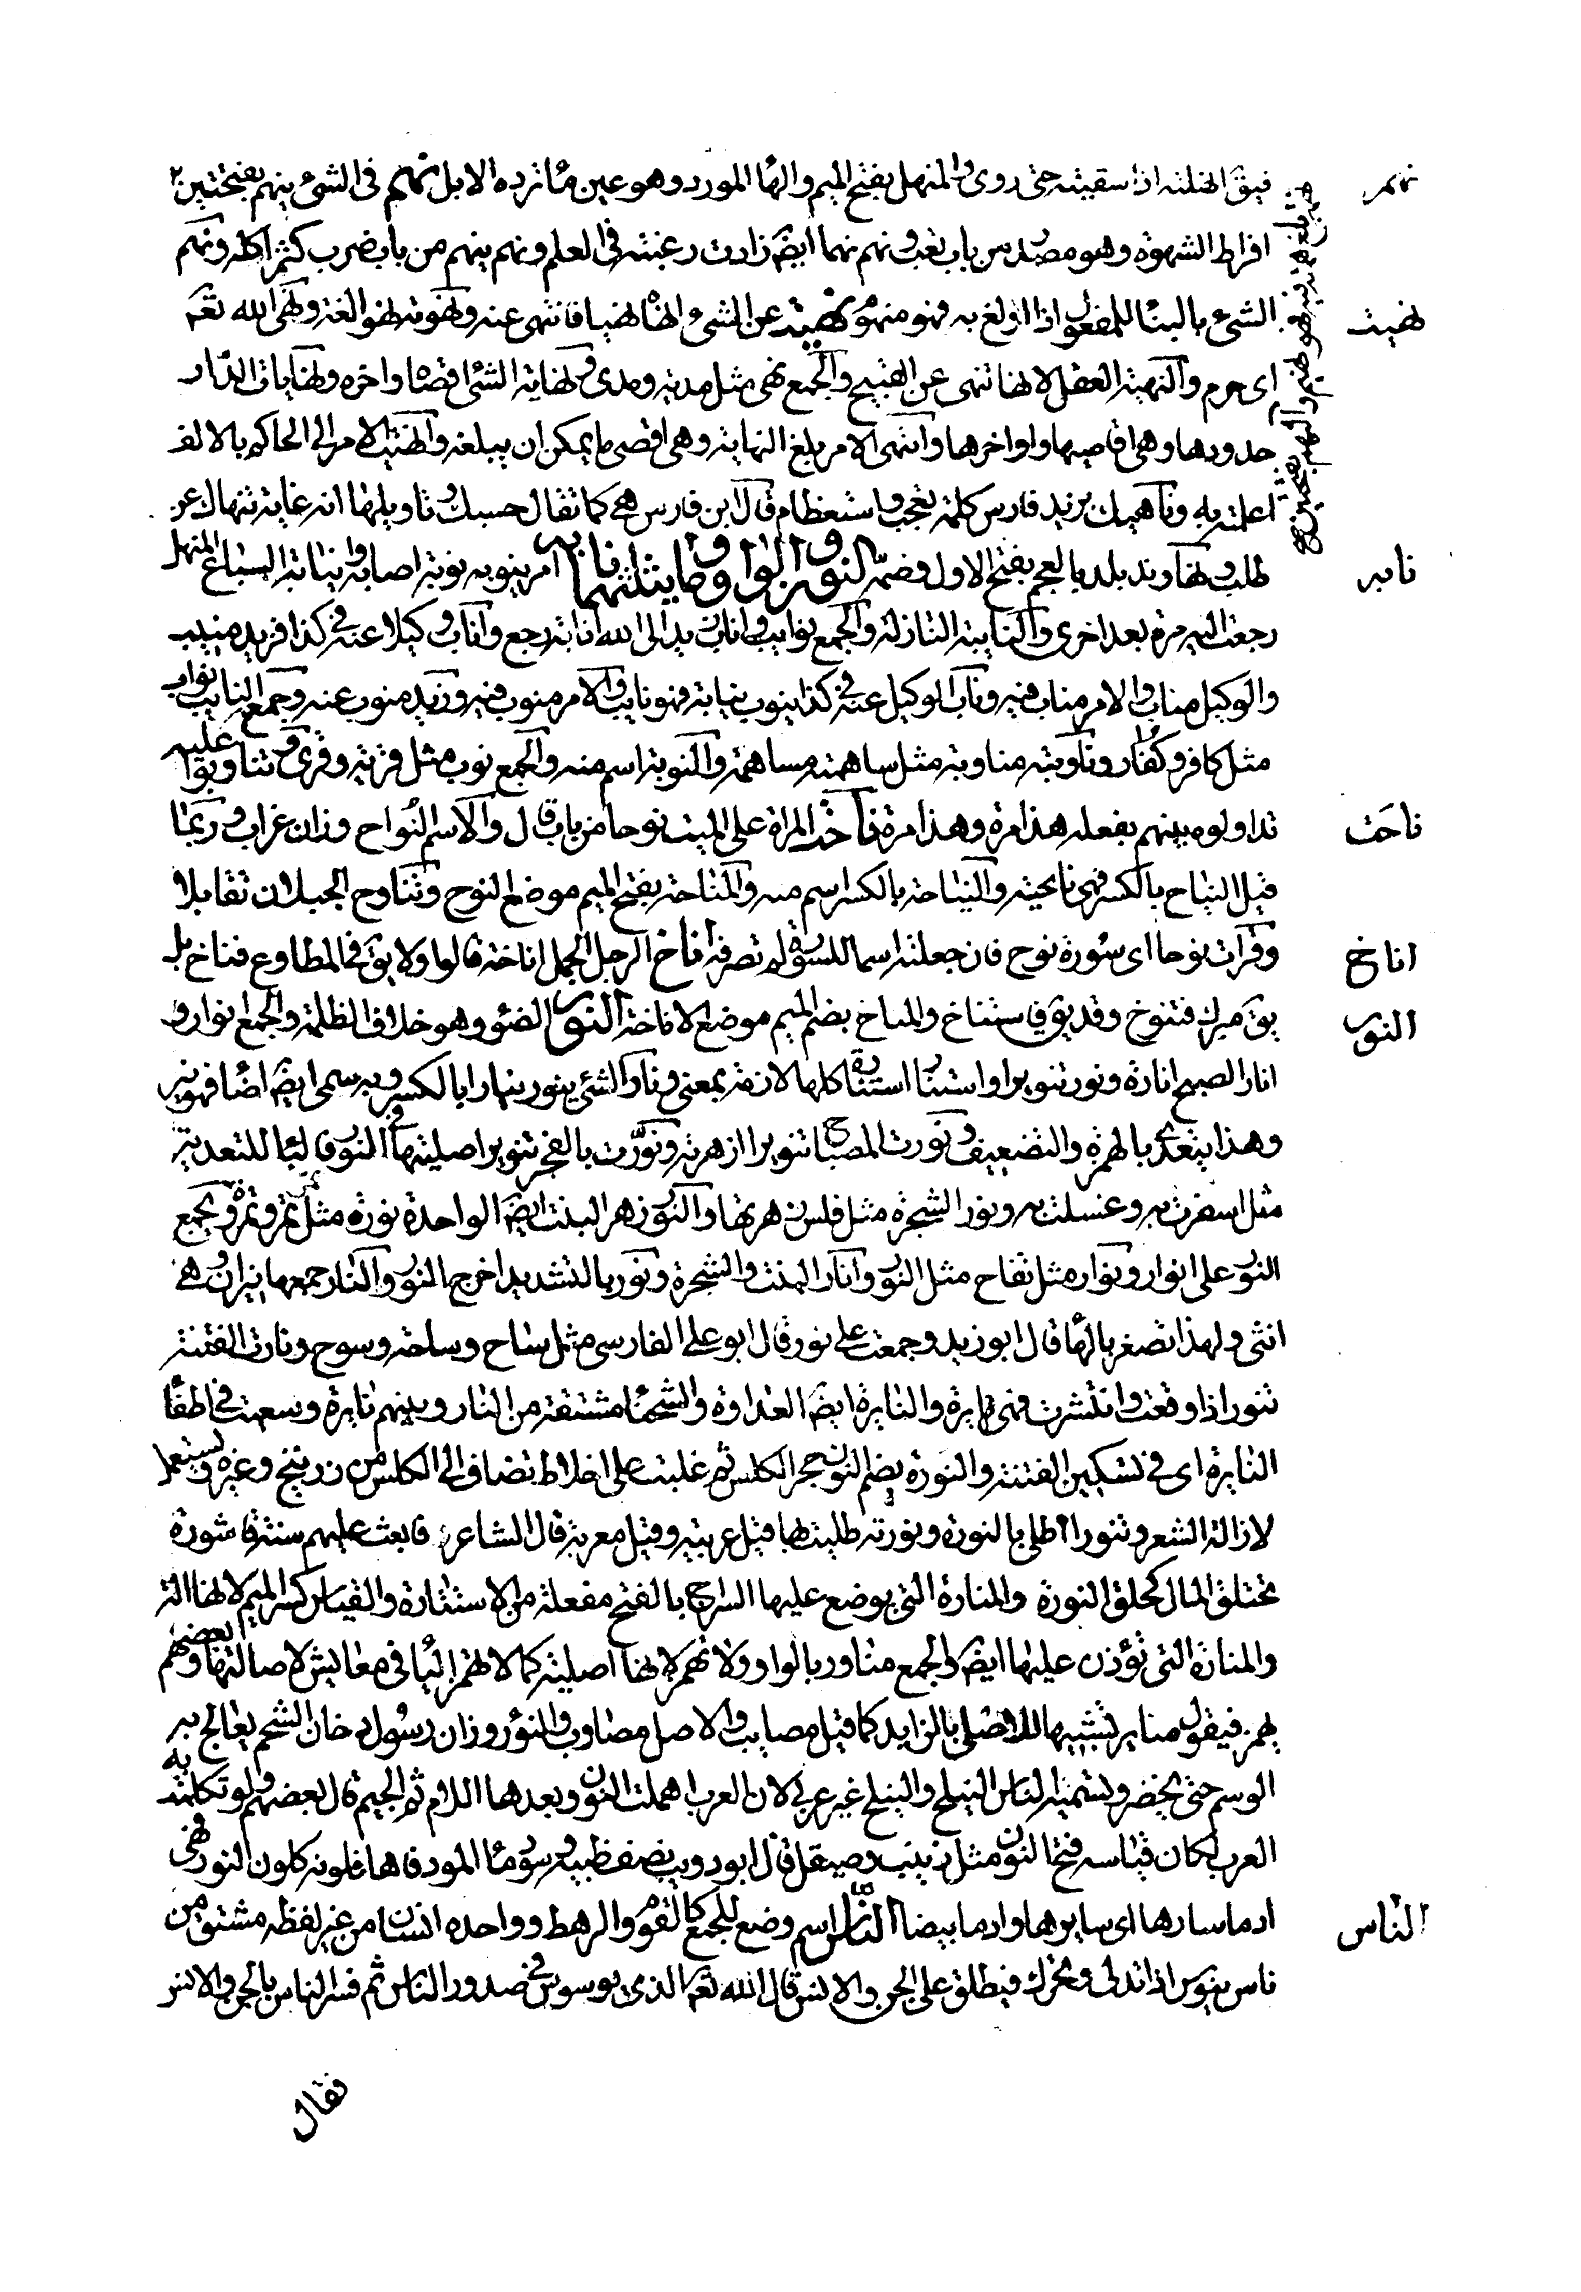 نهم
فيق انهلته اذا سقيته حتى روى والمنهل بفتح الميم والهاء المورد وهو عين ماء ترده الابل نهم فى الشئ ينهم بفتحتين
افراط الشهوة وهو مصدر من باب تعب ونهم نهما ايضً زادت رغبته فى العلم ونهم ينهم من باب ضرب كثر اكله ونهم
نهيته
الشئ بالبناء للمفعول اذا اولع به فهو منهوم نهيته عن الشئ انهاه نهيا فانتهى عنه ونهوته نهوا لغة ونهى الله تعَ
اى حرم والنهية العقل لانها تنهى عن القبيح والجمع نهى مثل مدية ومدى ونهاية الشئ اقصاه واخره ونهايات الدار
حدودها وهى اقاصيها واواخرها وانتهى الامر بلغ النهاية وهى اقصى ما يمكن ان يبلغه وانهيت الامر الى الحاكم بالالف
اعلمته به وناهيك بزيد فارس كلمة تعجب واستعظام قال ابن فارس هى كما تقال حسبك وتاويلها انه غاية تنهاك عن
نابه
طلب ونهاوند بلد بالعجم بفتح الاول وضمه النون والواو وما يثلثهما نابه امر ينوبه نوبة اصابه وانتابت السباع المنهل
رجعت اليه مرة بعد اخرى والنايبة النازلة والجمع نوايب واناب زيد الى الله انابة رجع واناب وكيلا عنه فى كذا فزيد منيب
والوكيل مناب والامر مناب فيه وناب الوكيل عنه فى كذا ينوب نيابة فهو نايب والامر منوب فيه وزيد منوب عنه وجمع النايب نواب
مثل كافر وكفار وناوبته مناوبة مثل ساهمته مساهمة والنوبة اسم منه والجمع نوب مثل قرية وقرى وتناوبوا عليه
ناحت
تداولوه بينهم بفعله هذا مرة وهذا مرة ناحت المراة على الميت نوحا من باب قال والاسم النواح وزان غراب وربما
قيل النياح بالكسر فهى نايحة والنياحة بالكسر اسم منه والمناحة بفتح الميم موضع النوح وتناوح الجبلان تقابلا
اناخ
وقرات نوحا اى سورة نوح فان جعلته اسما للسورة لم تصرفه اناخ الرجل الجمل اناخة قالوا ولا يقَ فى المطاوع فناخ بل
النور
يقَ فبرك فتنوخ وقد يقَ فاستناخ والمناخ بضم الميم موضع الاناخة النور الضوء وهو خلاف الظلمة والجمع انوار و
انار الصبح انارة ونور تنويرا واستنار استنارة كلها لازمة بمعنى ونار الشئ ينور نيارا بالكسر وبه سمى ايضً اضاء فهو نير
وهذا يتعدى بالهمزة والتضعيف ونورت المصباح تنويرا ازهرته ونورت بالفجر تنويرا صليتها فى النور فالباء للتعدية
مثل اسفرت به وغسلت به ونور الشجرة مثل فلس زهرتها والنور زهر النبت ايضً الواحدة نورة مثل تمر وتمرة ويجمع
النور على انوار ونوار مثل تفاح مثل النور وانار النبت والشجرة ونور بالتشديد اخرج النور والنار جمعها نيران وهى
انثى ولهذا تصغر بالهاء قال ابو زيد وجمعت على نور قال ابو على الفارسى مثل ساح وساحة وسوح ونارت الفتنة
تنور اذا وقعت وانتشرت فهى نايرة والنايرة ايضً العداوة والشحناء مشتقة من النار وبينهم نايرة وسعيت فى اطفاء
النايرة اى فى تسكين الفتنة والنورة بضم النون حجر الكلس ثم غلبت على اخلاط تضاف الى الكلس من زرنيخ وغيره ويستعمل
لازالة الشعر وتنور اطلى بالنورة ونورته طليته بها قيل عربية وقيل معربة قال الشاعر فابعث عليهم سنة قاشورة
تحتلق المال كحلق النورة والمنارة التى يوضع عليها السراج بالفتح مفعلة من الاستنارة والقياس كسر الميم لانها الة
والمنارة التى تؤذن عليها ايضً والجمع مناور بالواو ولا تهمز لانها اصلية كما لا تهمز الياء فى معايش لاصالتها وبعضهم
يهمز فيقول مناير تشبيها للاصلى بالزايد كما قيل مصايب والاصل مصاوب والنوور وزان رسول دخان الشحم يعالج به
الوسم حتى يخضر وتسميه الناس النيلج والنيلج غير عربى لان العرب اهملت النون وبعدها اللام ثم الجيم قال بعضهم ولو تكلمت به
العرب لكان قياسه فتح النون مثل زينب وصيقل قال ابو ذويب يصف ظبية وسود ماء المرد فاها فلونه كلون النوور فهى
الناس
ادماء سارها اى سايرها وادما بيضا الناس اسم وضع للجمع كالقوم والرهط وواحده انسان من غير لفظه مشتق من
ناس ينوس اذا تدلى وتحرك فيطلق على الجن والانس قال الله تعَ الذى يوسوس فى صدور الناس ثم فسر الناس بالجن والانس
فقال